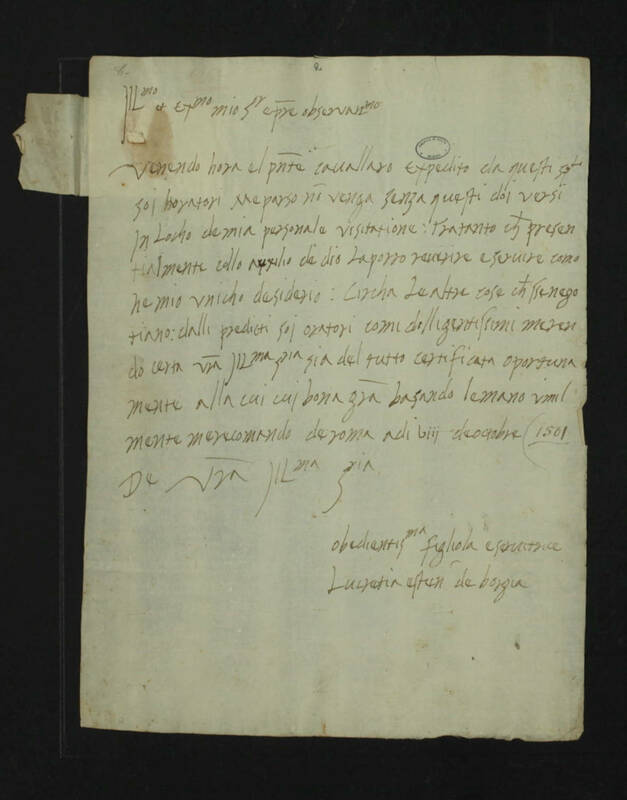 Ill^mo et Ex^mo mio S^r e p̄re observan^mo
Venendo hora el pn̄te cavallaro expedito da questi
soi horatori me parso nō venga senza questi doi versi
in locho de mia personale visitatione: tratanto ch̄ presen
tialmente collo auxilio de dio la porro reverire e servire como
he mio unicho desiderio: Circha le altre cose ch̄ se nego
tiano: dalli predicti soi oratori como dilligentissimi me ren
do certa vr̄a Ill^ma S^ria sia del tutto certificata oportuna
mente alla cui cui bona gr̄a basando le mano umil
mente me recomando de roma adi viii de octobre 1501
De Vr̄a Ill^ma S^ria
obedientis^ma figliola e servitrice
Lucretia esten̄ de borgia